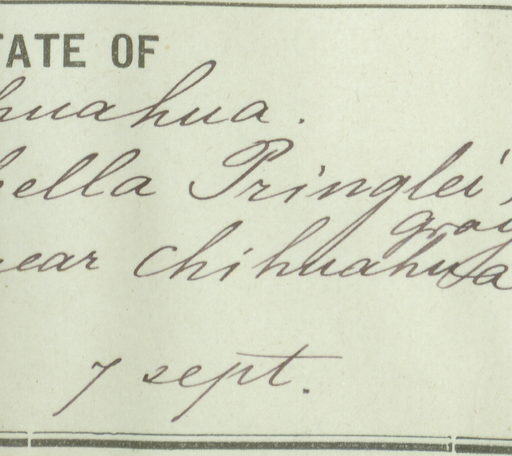 TATE OF
huahua.
hella Pringlei
gray
near chihuahua
7 sept.